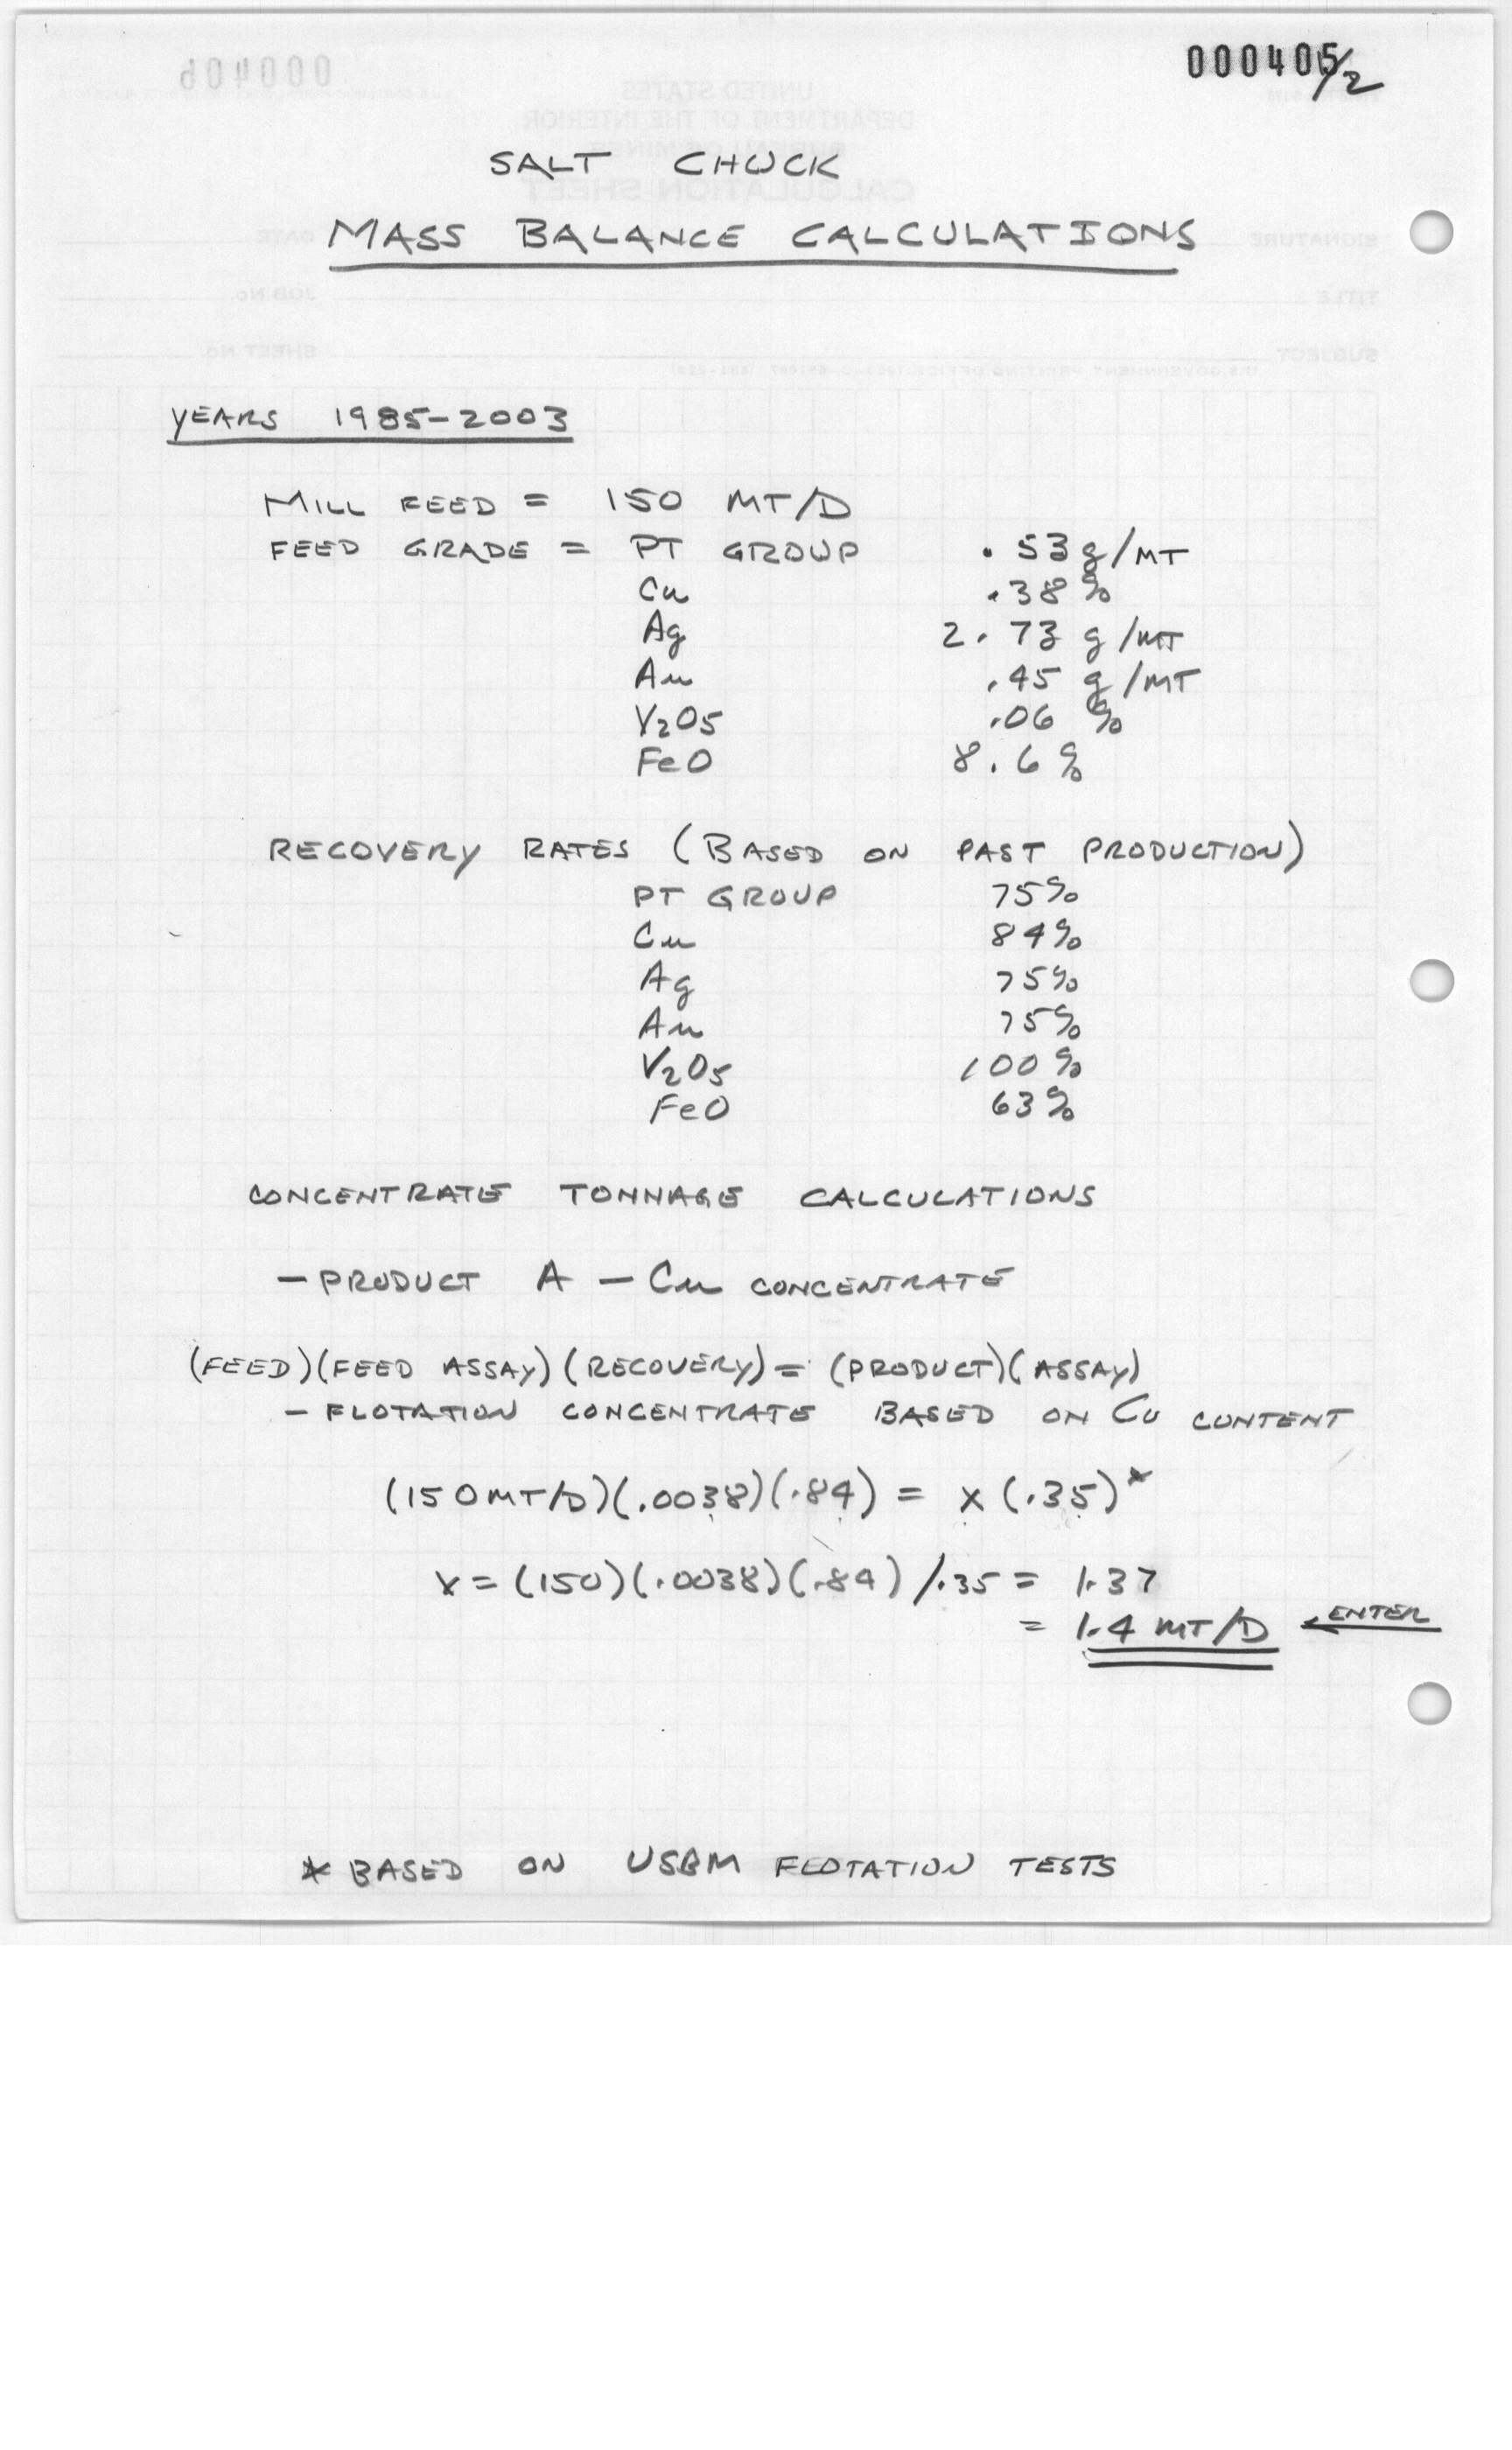 000405/2
SALT CHUCK
MASS BALANCE CALCULATIONS
YEARS 1985-2003
MILL FEED = 150 MT/D
FEED GRADE = PT GROUP .53 g/MT
Cu .38%
Ag 2.73 g/MT
Au .45 g/MT
V2O5 .06 %
FeO 8.6%
RECOVERY RATES (BASED ON PAST PRODUCTION)
PT GROUP 75%
Cu 84%
Ag 75%
Au 75%
V2O5 100%
FeO 63%
CONCENTRATE TONNAGE CALCULATIONS
- PRODUCT A - Cu CONCENTRATE
(FEED)(FEED ASSAY)(RECOVERY) = (PRODUCT)(ASSAY)
- FLOTATION CONCENTRATE BASED ON Cu CONTENT
(150MT/D)(.0038)(.84) = x (.35)*
x = (150)(.0038)(.84) /.35 = 1.37
= 1.4 MT/D ← ENTER
* BASED ON USBM FLOTATION TESTS